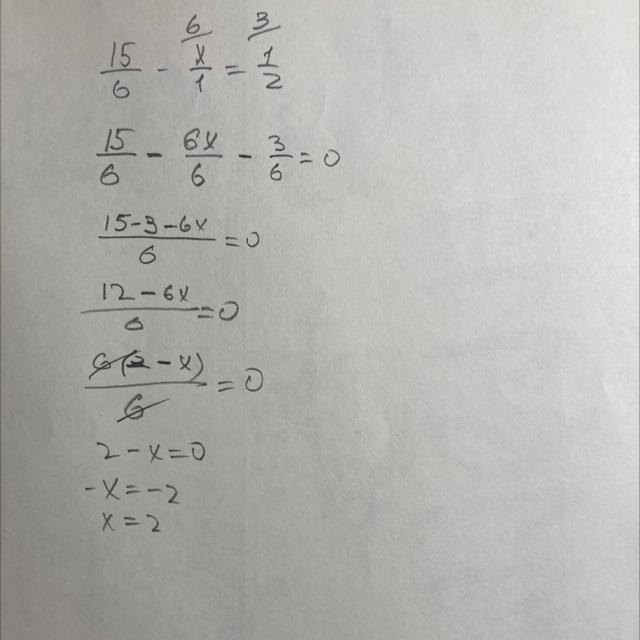 6/ 3/
15/6 - x/1 = 1/2
15/6 - 6x/6 - 3/6 = 0
15-3-6x/6 = 0
12-6x/6 = 0
6(2-x)/6 = 0
2-x=0
-x=-2
x=2